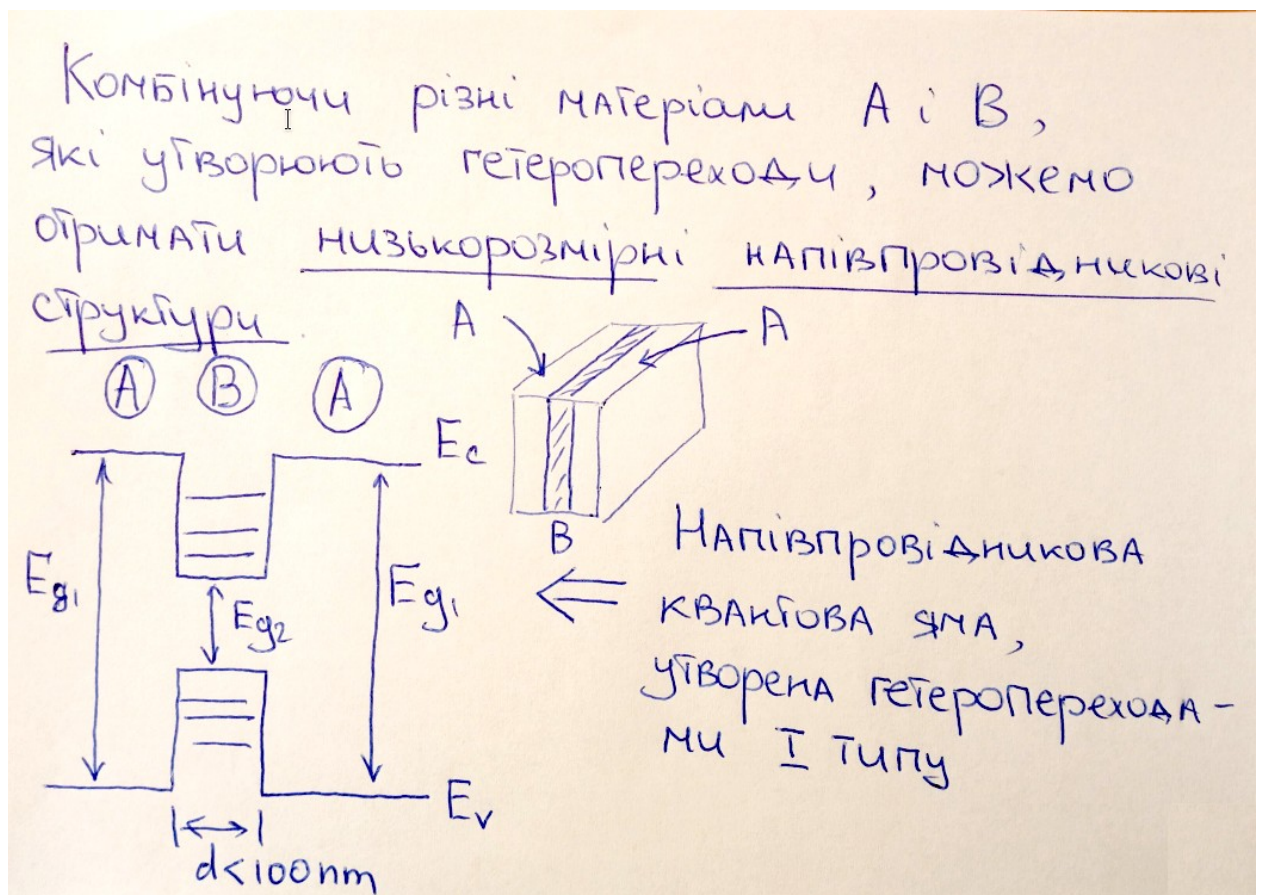 Комбінуючи різні матеріали A і B,
які утворюють гетеропереходи, можемо
отримати низькорозмірні напівпровідникові
структури.
A A
A B A
Ec
B
Напівпровідникова
квантова яма,
утворена гетероперехода-
ми I типу
Eg1 Eg2 Eg1
Ev
d<100nm